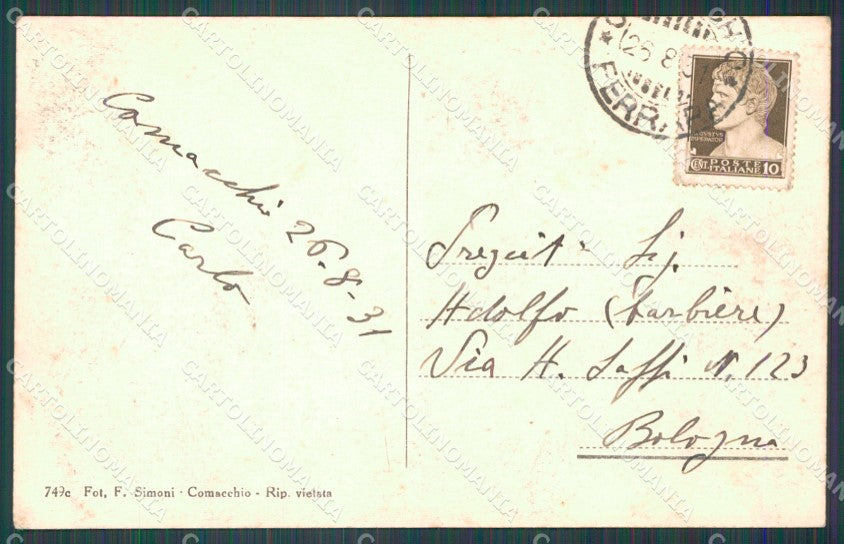 Comacchio 26-8-31
Carlo
26 8 31
FERRARA
AUGUSTUS
IMPERATOR
POSTE
CENT. ITALIANE 10
Sig.
Adolfo (barbiere)
Via A. Saffi N. 123
Bologna
749c Fot. F. Simoni · Comacchio - Rip. vietata
CARTOLINOMANIA